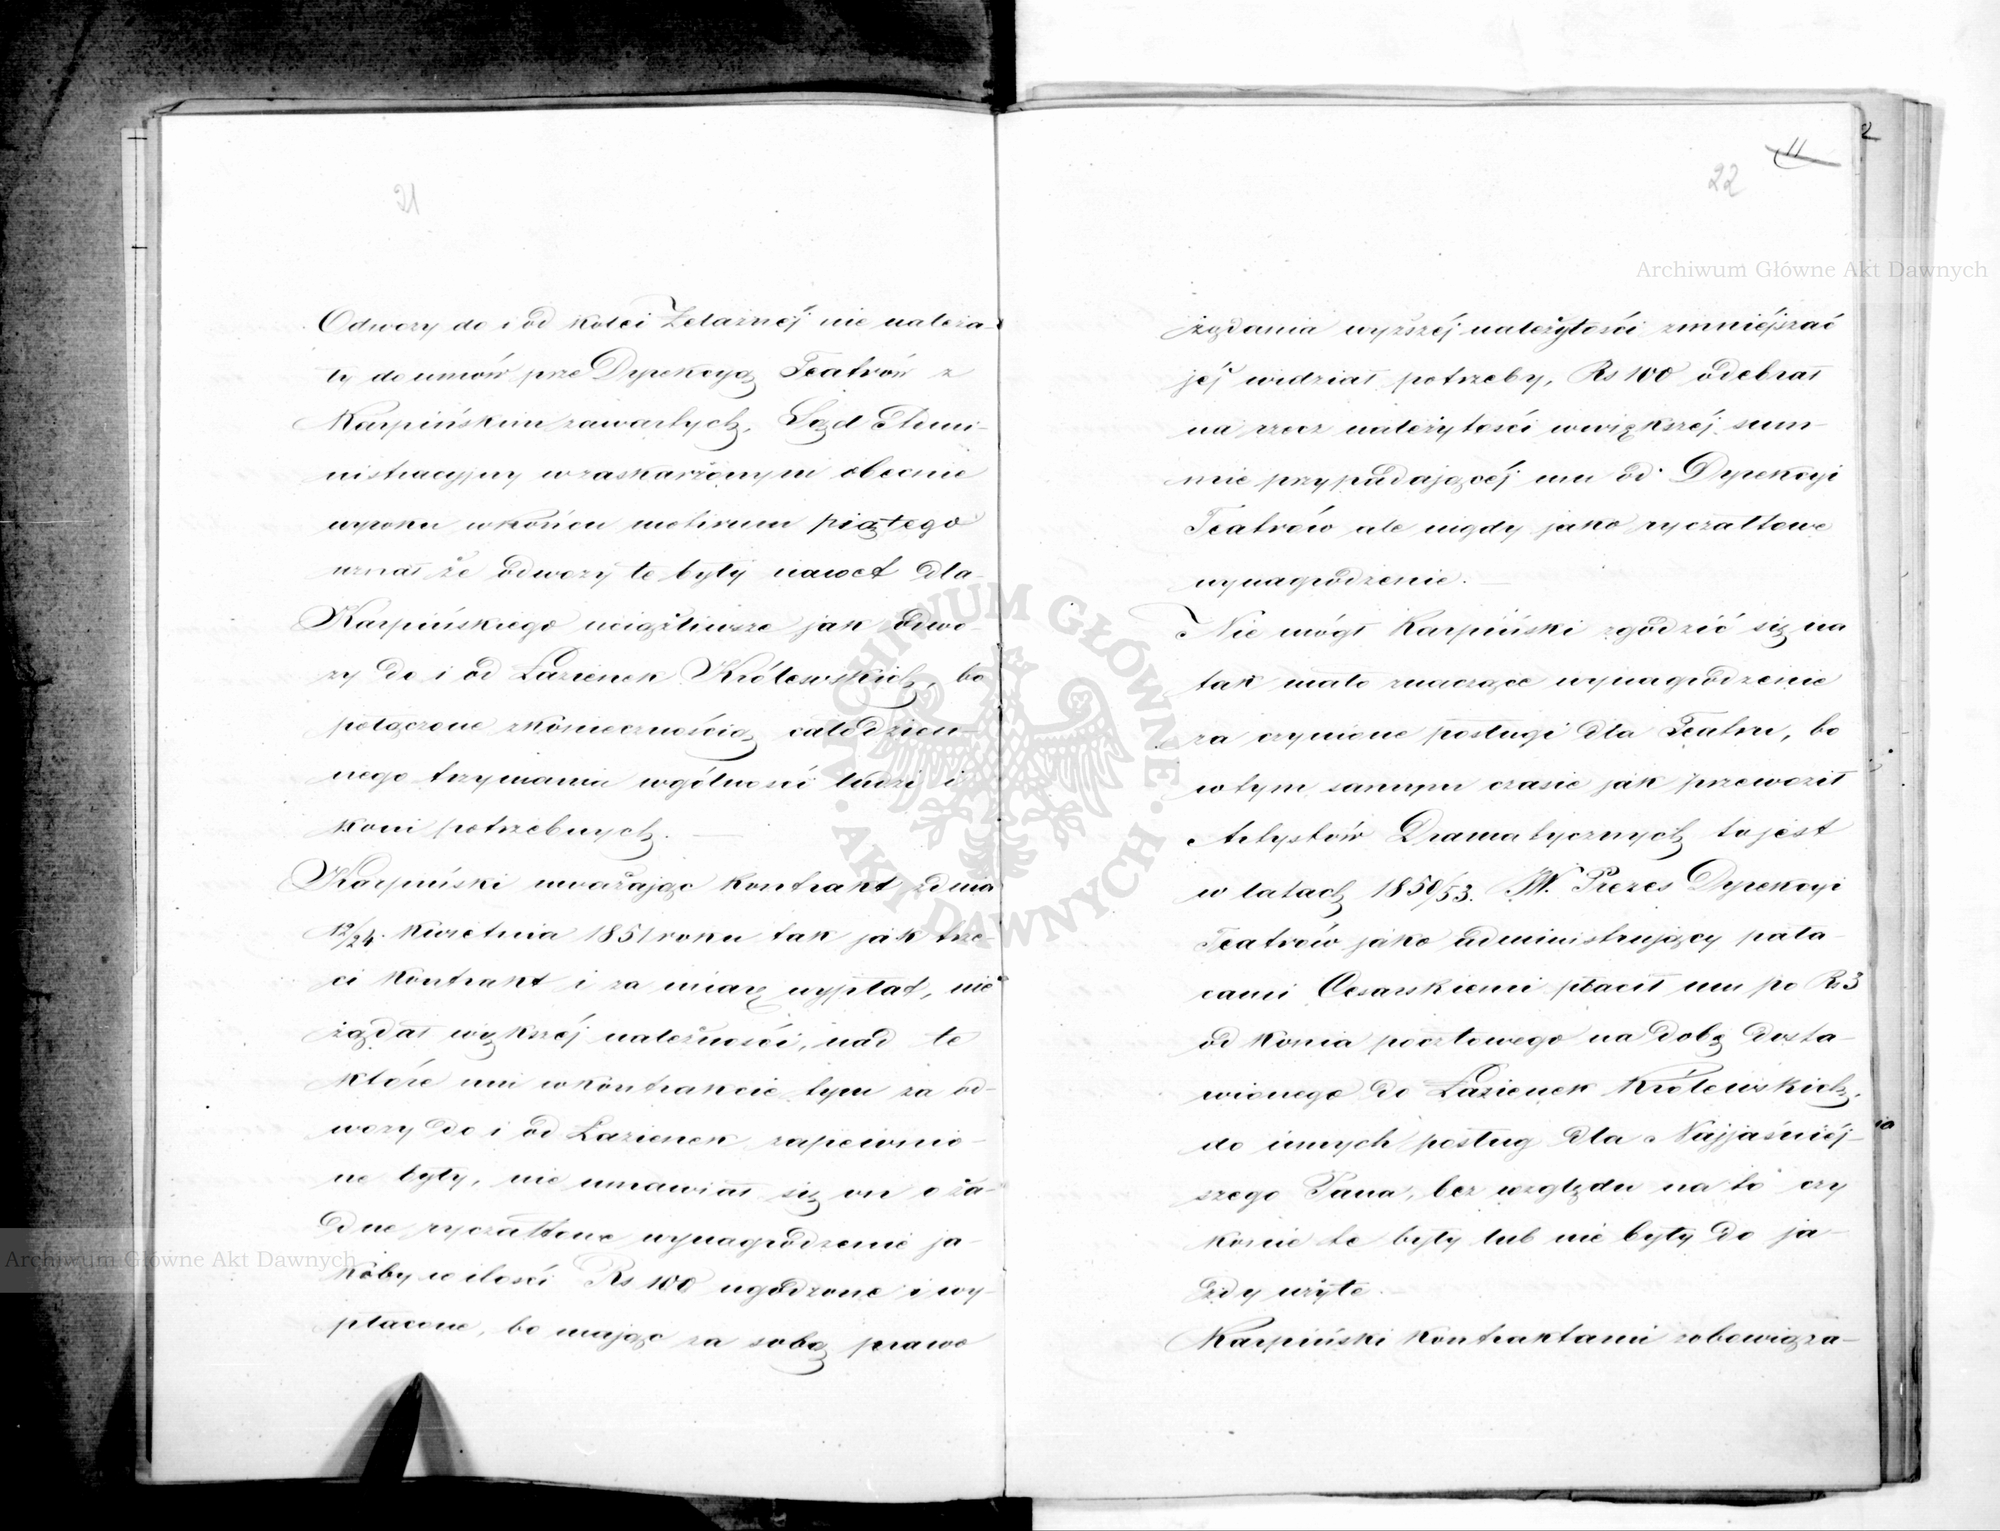 21
Odwozy do i od Kolei Żelaznéj nie należa-
ły do umów prze Dyrekcyą Teatrów z
Karpińskim zawartych. Sąd Admi-
nistracyjny w zaskarżonym obecnie
wyroku w końcu motivum piątego
uznał że odwozy te były nawet dla
Karpińskiego uciążliwsze jak odwo
zy do i od Łazienek Królewskich, bo
połączone z koniecznością całodzien-
nego trzymania w gotowości ludzi i
koni potrzebnych. —
Karpiński uważając kontrakt z dnia
12/24. Kwietnia 1851 roku tak jak trze
ci kontrakt i za miarę wypłat, nie
żądał większéj należności, nad te
które mu w kontrakcie tym za od-
wozy do i od Łazienek zapewnio-
ne były, nie umawiał się on o ża-
dne ryczałtowe wynagrodzenie ja-
koby w ilości Rs 100 ugodzone i wy-
płacone, bo mając za sobą prawo
11
22
2
żądania wyższéj należytości zmniéjszać
jéj widział potrzeby, Rs 100 odebrał
na rzecz należytości w większéj sum-
mie przypadającéj mu od Dyrekcyi
Teatrów ale nigdy jako ryczałtowe
wynagrodzenie. —
Nie mógł Karpiński zgodzić się na
tak mało znaczące wynagrodzenie
za czynione posługi dla Teatru, bo
w tym samym czasie jak przewoził
Artystów Dramatycznych to jest
w latach 1850/53. JW. Prezes Dyrekcyi
Teatrów jako administrujący pała-
cami Cesarskiemi płacił mu po Rs 3
od konia pocztowego na dobę dosta-
wionego do Łazienek Królewskich,
do innych posług dla Najjaśniéj-
szego Pana, bez względu na to czy
konie te były lub nie były do ja-
zdy użyte. —
Karpiński kontraktami zobowiąza-
Archiwum Główne Akt Dawnych
Archiwum Główne Akt Dawnych
ARCHIWUM GŁÓWNE AKT DAWNYCH